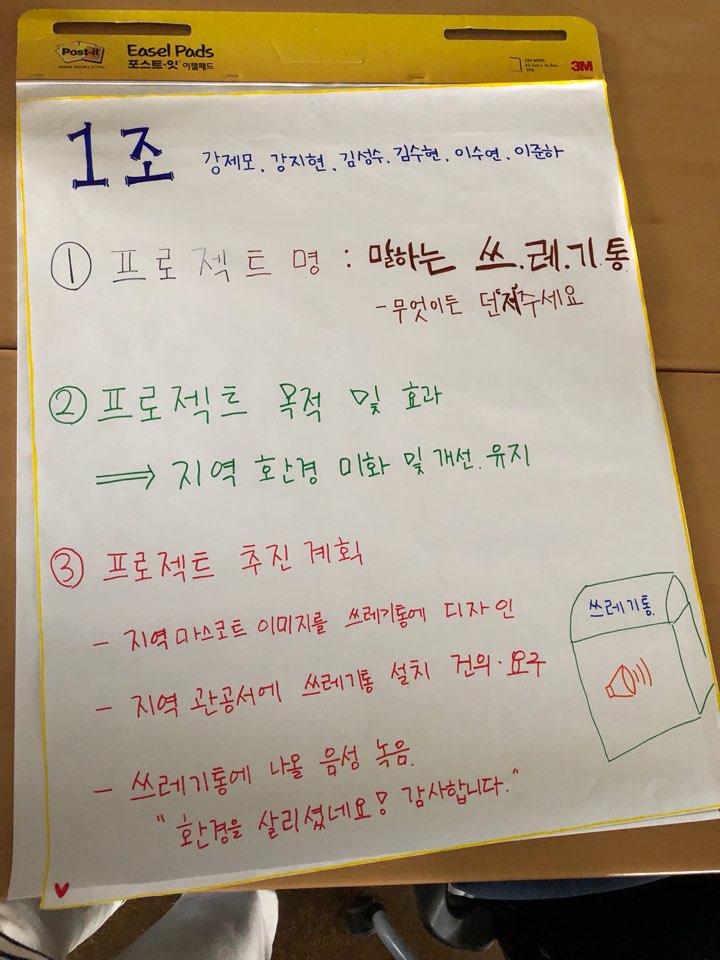 Post-it
Easel Pads
포스트-잇 이젤패드
3M
1조 강제모, 강지현, 김성수, 김수현, 이수연, 이준하
① 프로젝트 명 : 말하는 쓰.레.기.통
- 무엇이든 던"져"주세요
② 프로젝트 목적 및 효과
⟹ 지역 환경 미화 및 개선. 유지
③ 프로젝트 추진 계획
- 지역 마스코트 이미지를 쓰레기통에 디자인
- 지역 관공서에 쓰레기통 설치 건의·요구
쓰레기통.
- 쓰레기통에 나올 음성 녹음.
"환경을 살리셨네요! 감사합니다."